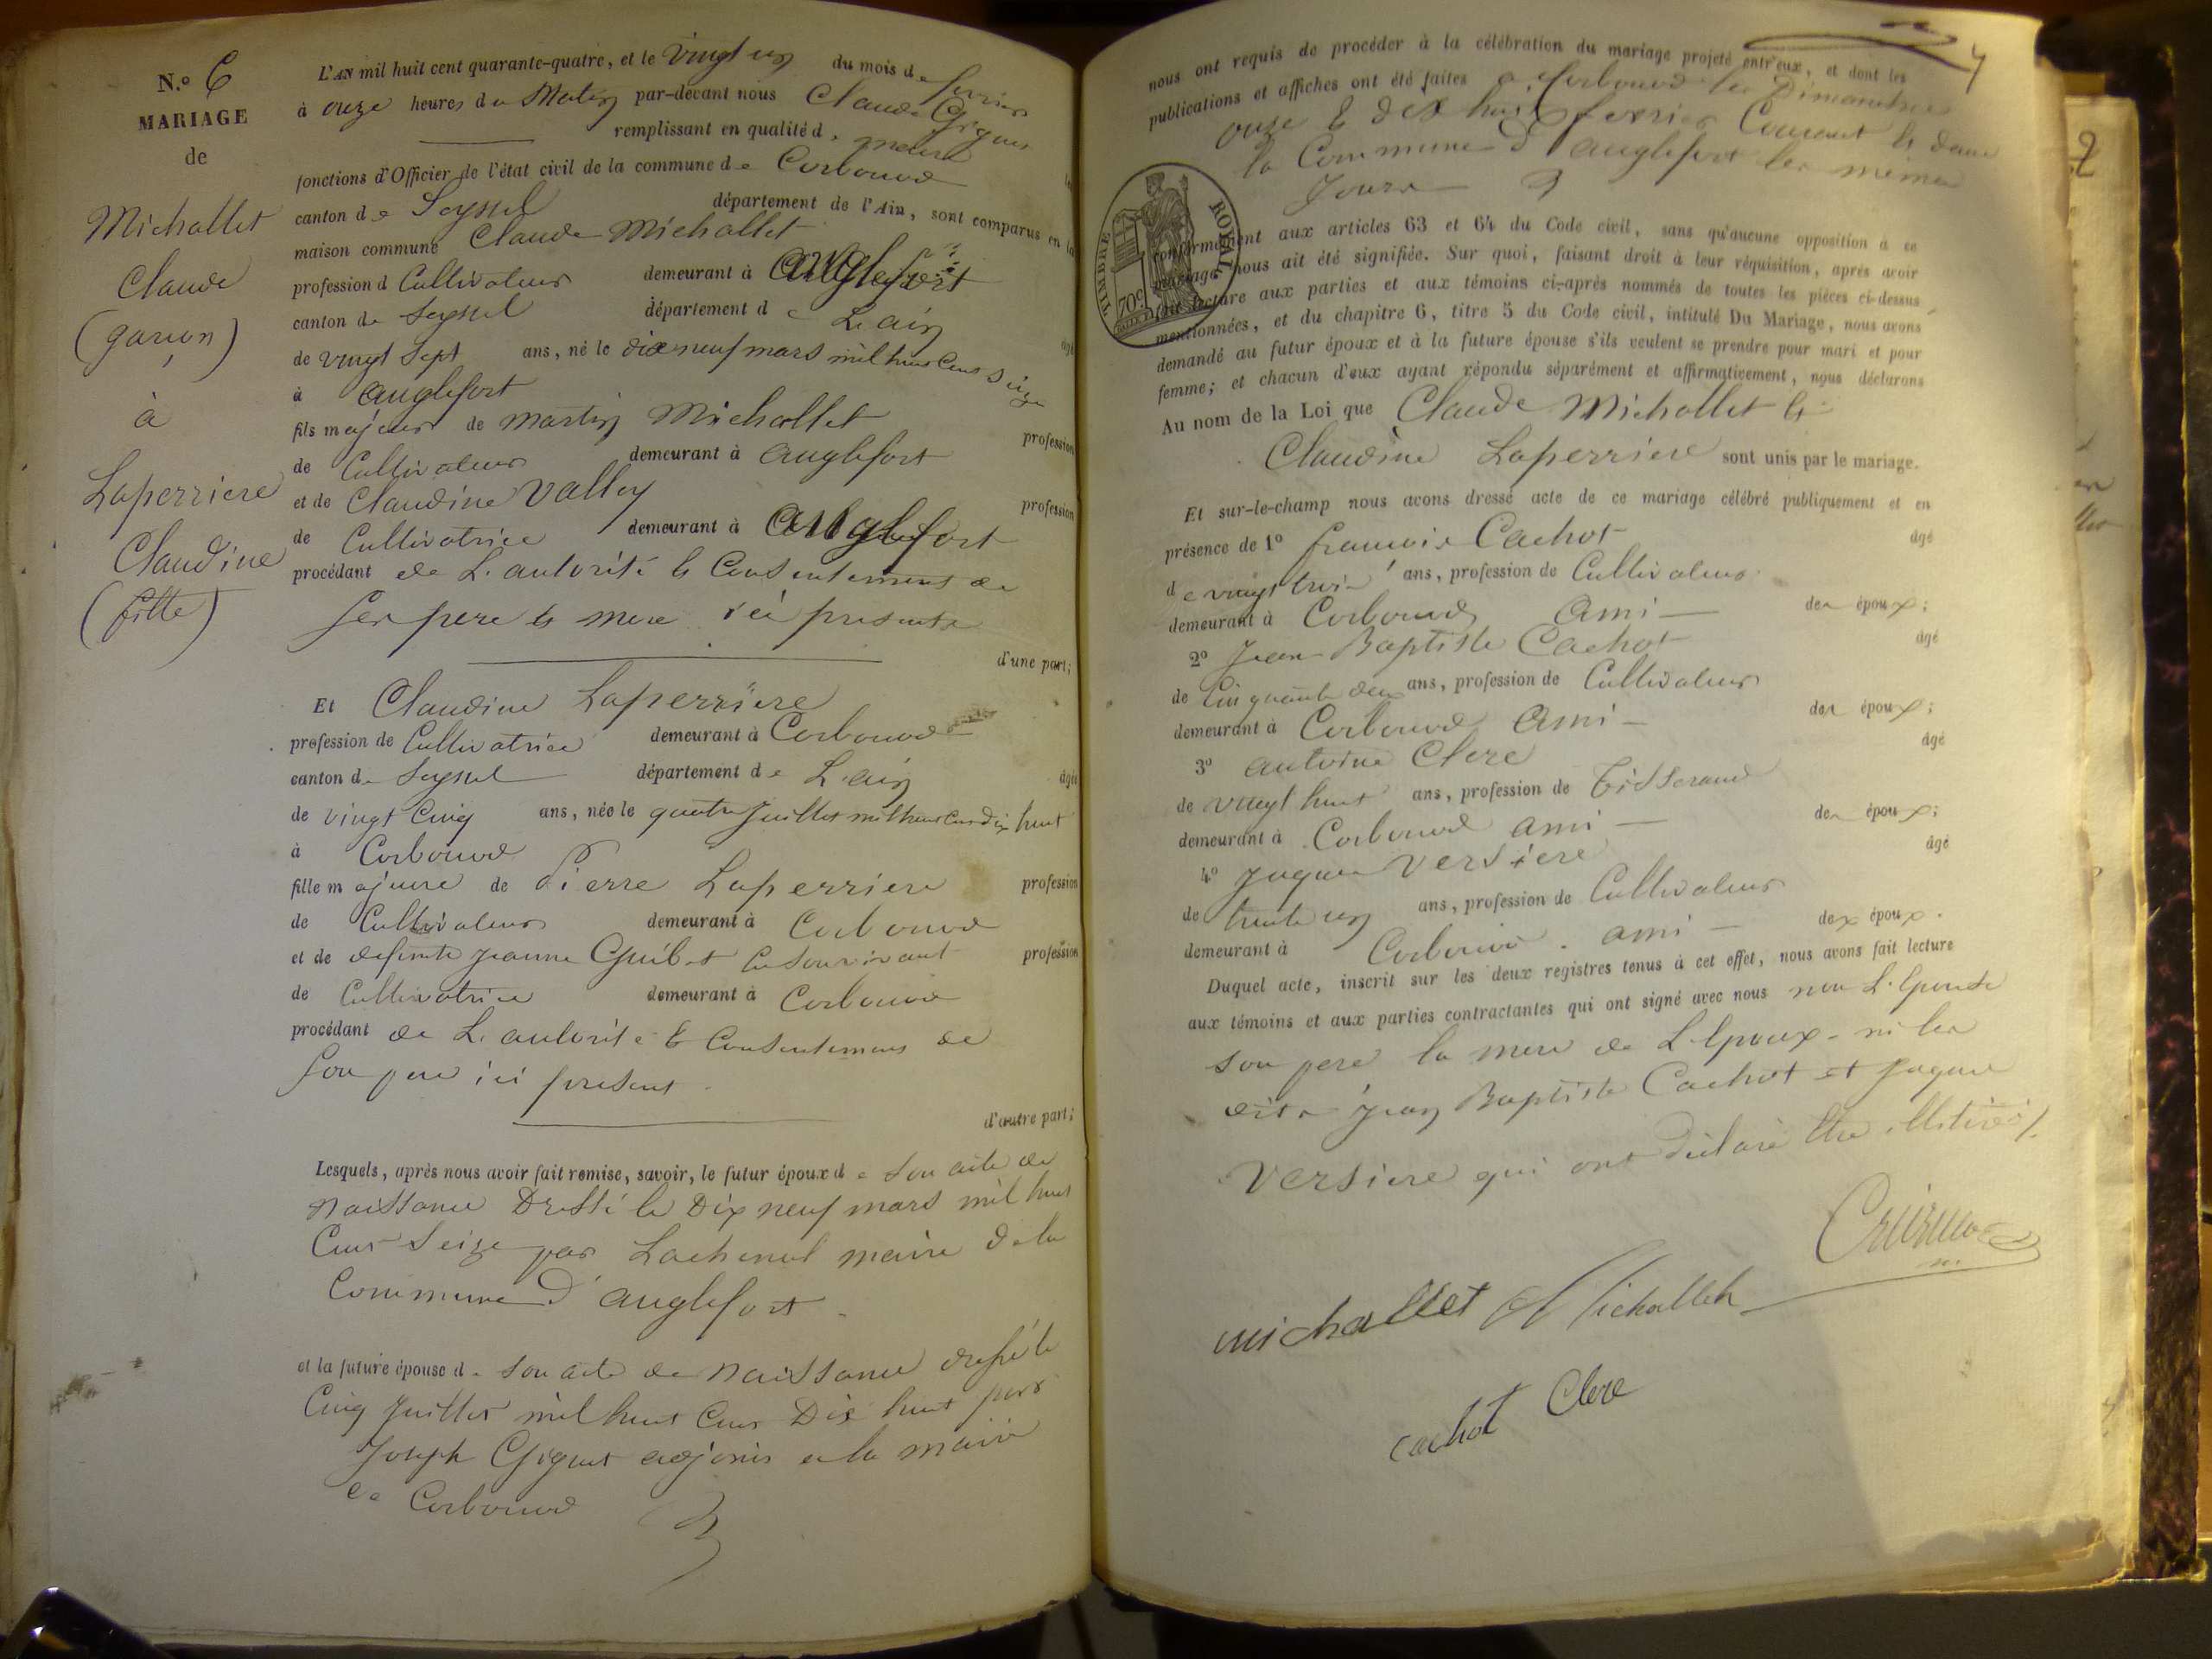 N.º 6
MARIAGE
de
Michallet
Claude
(garson)
à
Laperriere
Claudine
(fille)
L'AN mil huit cent quarante-quatre, et le vingt un du mois de fevrier
à onze heures du Matin par-devant nous Claude Giguet
remplissant en qualité d. maire les
fonctions d'Officier de l'état civil de la commune de Corbonod
canton de Seyssel département de l'Ain, sont comparus en la
maison commune Claude Michallet
profession d Cultivateur demeurant à anglefort
canton de Seyssel département de L'ain âgé
de vingt sept ans, né le dix neuf mars mil huit cent seize
à anglefort
fils majeur de martin Michallet profession
de Cultivateur demeurant à anglefort
et de Claudine Vallet profession
de Cultivatrice demeurant à anglefort
procédant de L'autorité et Consentement de
ses pere et mere ici presents
d'une part;
Et Claudine Laperriere
profession de Cultivatrice demeurant à Corbonod
canton de Seyssel département de L'ain âgée
de vingt cinq ans, née le quatre juillet mil huit cent dix huit
à Corbonod
fille majeure de Pierre Laperriere profession
de Cultivateur demeurant à Corbonod
et de defunte jeanne profession
de Cultivatrice demeurant à Corbonod
procédant de L'autorité et Consentement de
son pere ici present.
d'autre part;
Lesquels, après nous avoir fait remise, savoir, le futur époux de son acte de
naissance Dressé le Dix neuf mars mil huit
Cent Seize par Lachenal maire de la
Commune d'anglefort
et la future épouse de son acte de naissance dressé le
Cinq juillet mil huit Cent Dix huit par
Joseph Giguet adjoint a la mairie
de Corbonod
nous ont requis de procéder à la célébration du mariage projeté entr'eux, et dont les
publications et affiches ont été faites a Corbonod les Dimanches
onze et dix huit fevrier Courant et dans
la Commune d'anglefort les mêmes
Jours
TIMBRE ROYAL
70c
conformément aux articles 63 et 64 du Code civil, sans qu'aucune opposition à ce
mariage nous ait été signifiée. Sur quoi, faisant droit à leur réquisition, après avoir
fait lecture aux parties et aux témoins ci-après nommés de toutes les pièces ci-dessus
mentionnées, et du chapitre 6, titre 5 du Code civil, intitulé Du Mariage, nous avons
demandé au futur époux et à la future épouse s'ils veulent se prendre pour mari et pour
femme; et chacun d'eux ayant répondu séparément et affirmativement, nous déclarons
Au nom de la Loi que Claude Michallet et
Claudine Laperriere sont unis par le mariage.
Et sur-le-champ nous avons dressé acte de ce mariage célébré publiquement et en
présence de 1º francois Cachot âgé
de vingt trois ans, profession de Cultivateur
demeurant à Corbonod Ami des époux;
2º Jean Baptiste Cachot âgé
de Cinquante deux ans, profession de Cultivateur
demeurant à Corbonod Ami des époux;
3º antoine Clere âgé
de vingt huit ans, profession de Tisserand
demeurant à Corbonod ami des époux;
4º Jaque Versiere âgé
de trente un ans, profession de Cultivateur
demeurant à Corbonod. ami des époux.
Duquel acte, inscrit sur les deux registres tenus à cet effet, nous avons fait lecture
aux témoins et aux parties contractantes qui ont signé avec nous non L'epouse
son pere la mere de L'epoux ni les
dits jean Baptiste Cachot et Jaque
Versiere qui ont declaré être illitérés
michallet Michalleh
cachot Clere